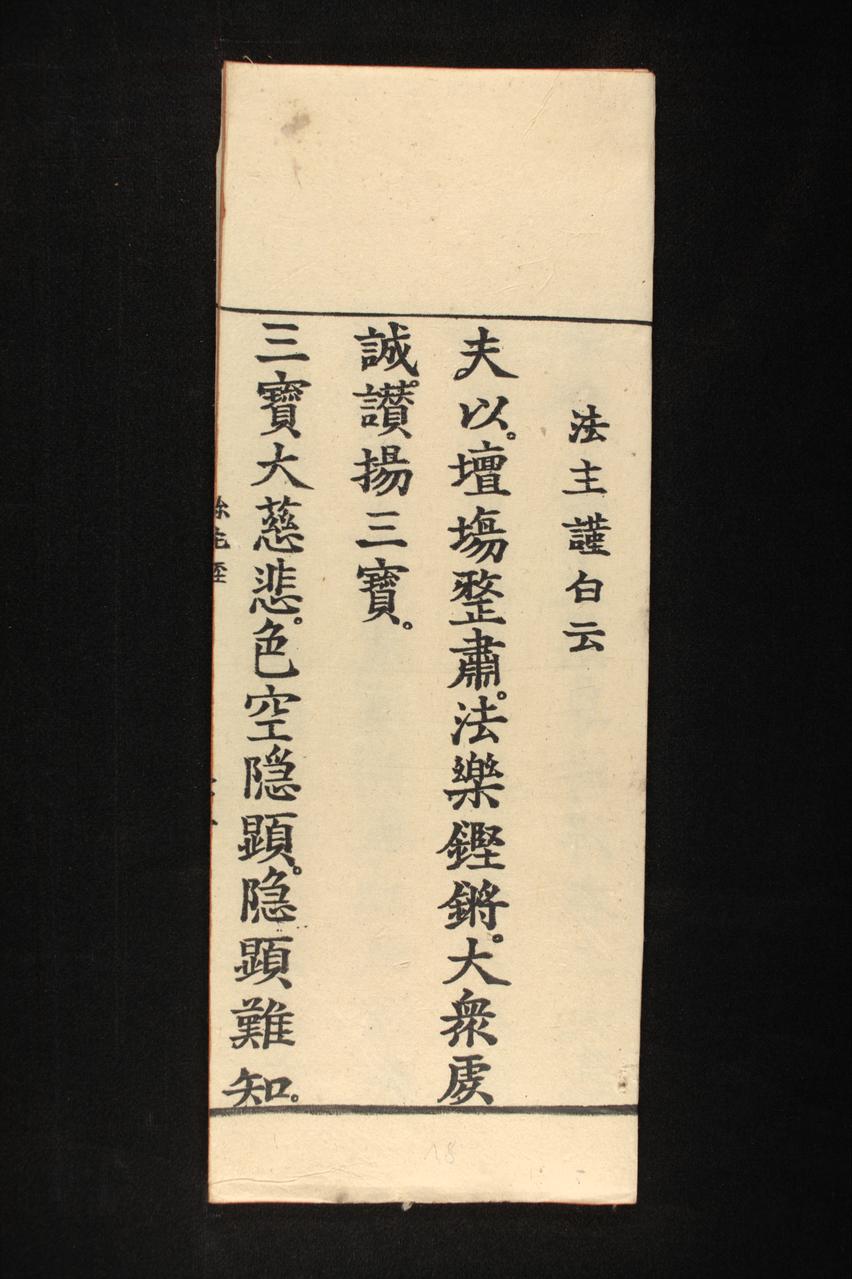 法主謹白云
夫以。壇塲整肅。法樂鏗鏘。大衆虔
誠。讃揚三寶。
三寶大慈悲。色空隠顕。隠顕難知。
18